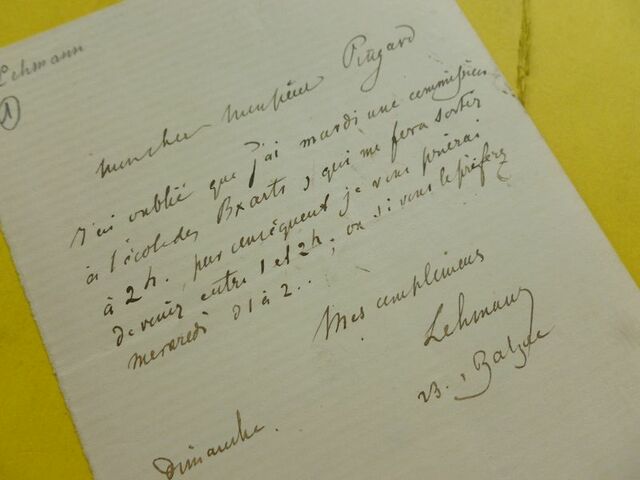 Lehmann
1
mon cher monsieur Pingard
J'ai oublié que j'ai mardi une commission
à l'école des Bxarts, qui me fera sortir
à 2 h. par conséquent je vous prierai
de venir entre 1 et 2 h. ou si vous le préférez
mercredi d 1 à 2..
Mes compliments
Lehmann
23., Balzac
Dimanche.